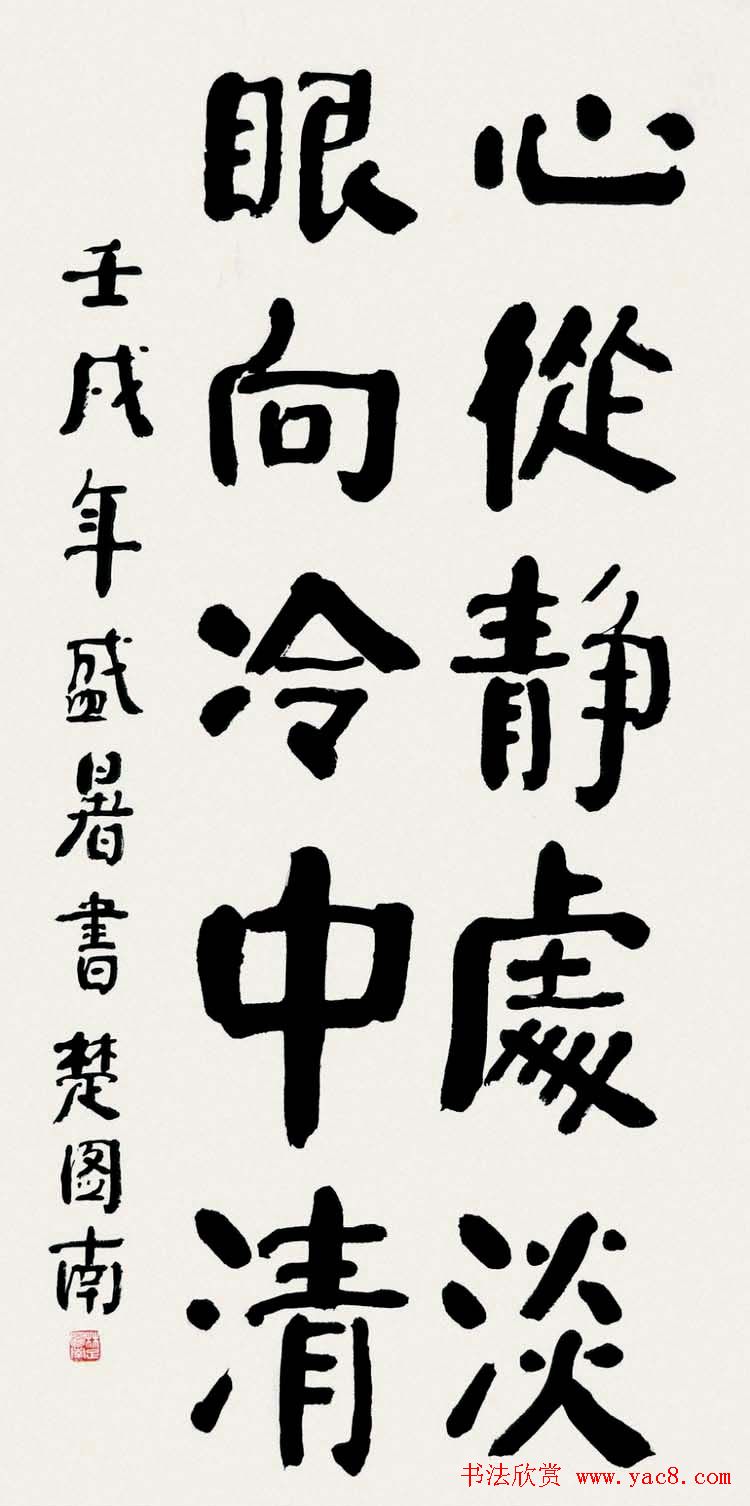 心從靜處淡
眼向冷中清
壬戌年盛暑書楚图南
书法欣赏 www.yac8.com